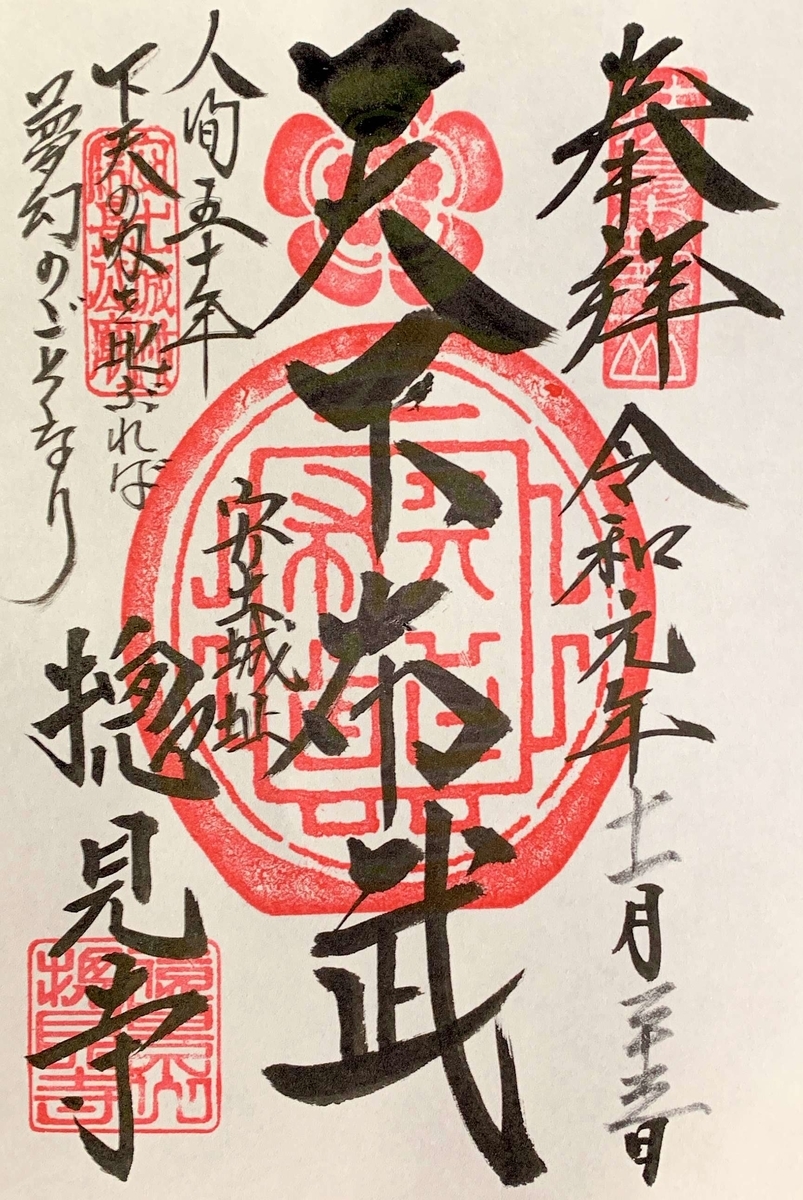 奉拝
令和元年十一月二十三日
天下布武
安土城址
人間五十年
下天の内を比ぶれば
夢幻のごとくなり
摠見寺
遠景山
摠見寺